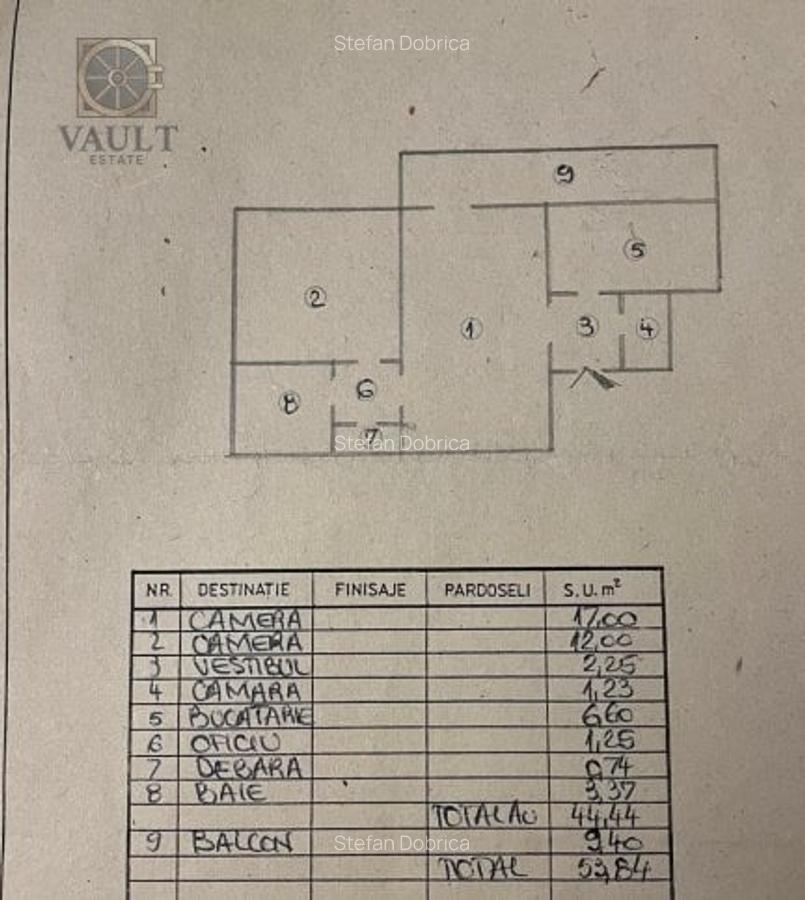 Stefan Dobrica
VAULT
ESTATE
9
5
2
1
3
4
6
8
7
Stefan Dobrica
NR. DESTINAȚIE FINISAJE PARDOSELI S.U. m²
1 CAMERA 17,00
2 CAMERA 12,00
3 VESTIBUL 2,25
4 CAMARA 1,23
5 BUCATARIE 6,60
6 OFICIU 1,25
7 DEBARA 0,74
8 BAIE 3,37
TOTAL AU 44,44
9 BALCON 9,40
Stefan Dobrica
TOTAL 53,84